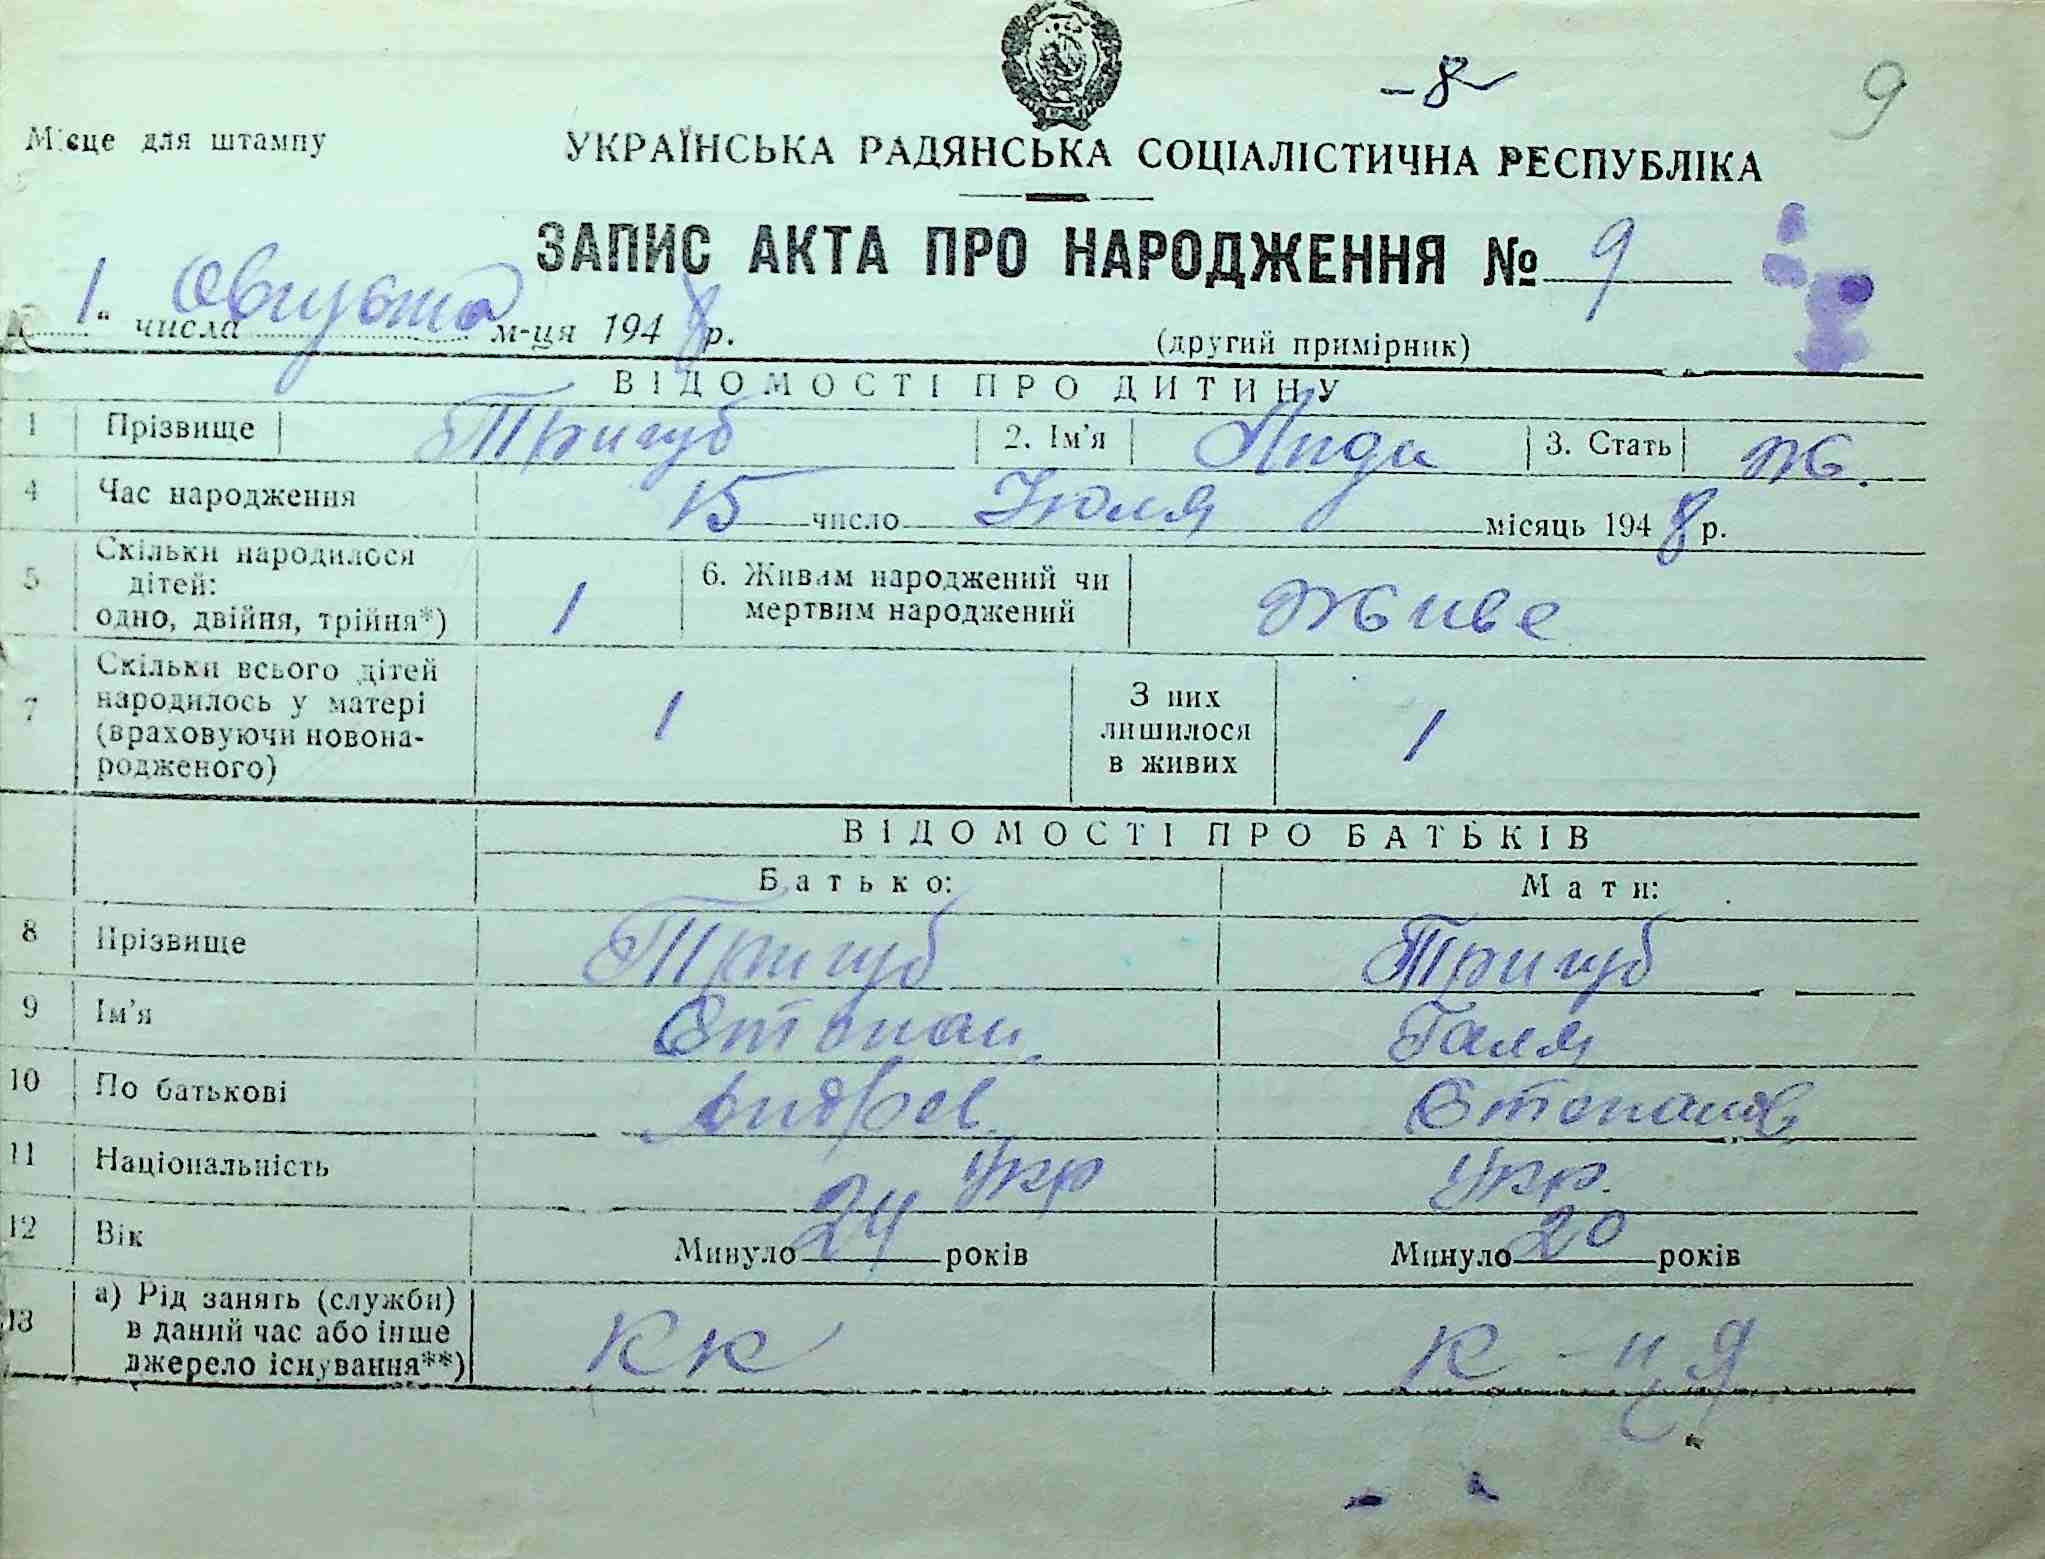 -8-
9
Місце для штампу
УКРАЇНСЬКА РАДЯНСЬКА СОЦІАЛІСТИЧНА РЕСПУБЛІКА
ЗАПИС АКТА ПРО НАРОДЖЕННЯ № 9
1 " числа Августа м-ця 1948 р.
(другий примірник)
ВІДОМОСТІ ПРО ДИТИНУ
1 Прізвище Тригуб 2. Ім'я Лида 3. Стать ж.
4 Час народження 15 число Июля місяць 1948 р.
5 Скільки народилося дітей: одно, двійня, трійня*) 1 6. Живим народжений чи мертвим народжений живе
7 Скільки всього дітей народилось у матері (враховуючи новона-родженого) 1 З них лишилося в живих 1
ВІДОМОСТІ ПРО БАТЬКІВ
Батько: Мати:
8 Прізвище Тригуб Тригуб
9 Ім'я Степан Галя
10 По батькові Андрев. Степанов
11 Національність Укр Укр.
12 Вік Минуло 24 років Минуло 20 років
13 а) Рід занять (служби) в даний час або інше джерело існування**) КК К-ця